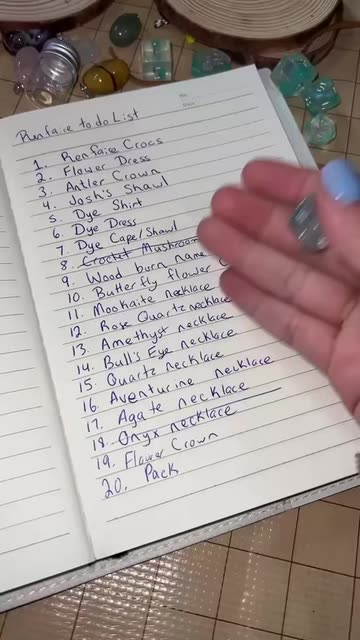 Renfaire to do List
1. Renfaire Crocs
2. Flower Dress
3. Antler Crown
4. Josh's Shawl
5. Dye Shirt
6. Dye Dress
7. Dye Cape/Shawl
8. Crochet Mushroom
9. Wood burn name
10. Butterfly flower
11. Mookaite necklace
12. Rose Quartz necklace
13. Amethyst necklace
14. Bull's Eye necklace
15. Quartz necklace
16. Aventurine necklace
17. Agate necklace
18. Onyx necklace
19. Flower Crown
20. Pack